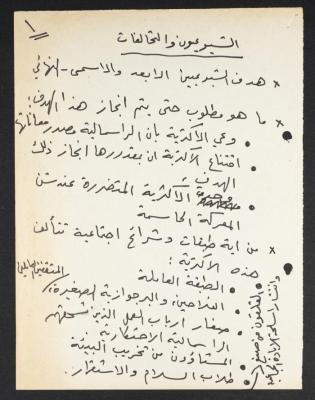 ١
الشيوعيون والتحالفات
× هدف الشيوعيين الابعد والاسمى - النهائي
× ما هو مطلوب حتى يتم انجاز هذا الهدف؛
• وعي الاكثرية بان الراسمالية مصدر معاناتها
• اقتناع الاكثرية ان بمقدورها انجاز ذلك
الهدف
• الاكثرية المتضررة عند شن
المعركة الحاسمة
× من اية طبقات وشرائح اجتماعية تتألف
هذه الاكثرية؛
• الطبقة العاملة
• الفلاحين والبرجوازية الصغيرة، المثقفين
• صغار ارباب العمل الذين تسحقهم
الراسمالية الاحتكارية
• المستاؤون من تخريب البيئة
• طلاب السلام والاستقرار.